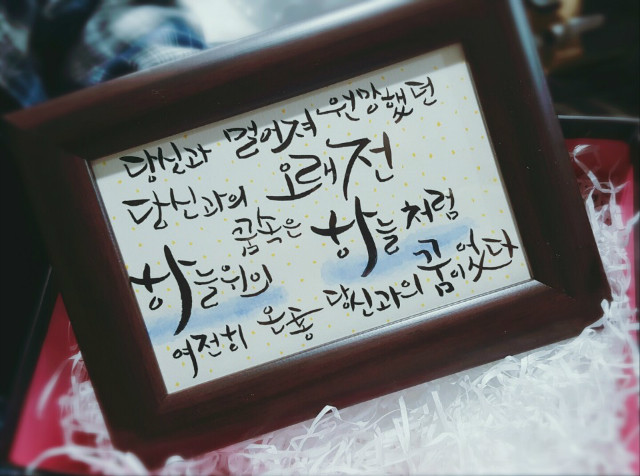 당신과 멀어져 원망했던
당신과의 오래전
꿈속은 하늘처럼
하늘위의
여전히 온통 당신과의 꿈이었다